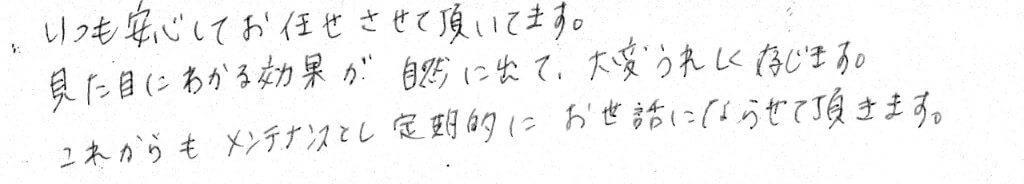 いつも安心してお任せさせて頂いてます。
見た目にわかる効果が自然に出て、大変うれしく存じます。
これからもメンテナンスとし定期的にお世話にならせて頂きます。